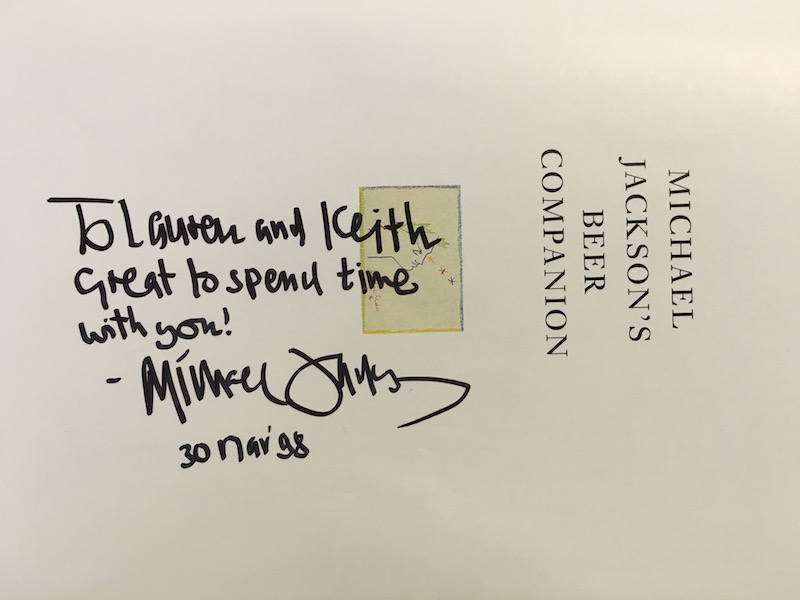 To Lauren and Keith
Great to spend time
with you!
- Michael Jackson
30 Mar '98
MICHAEL
JACKSON'S
BEER
COMPANION